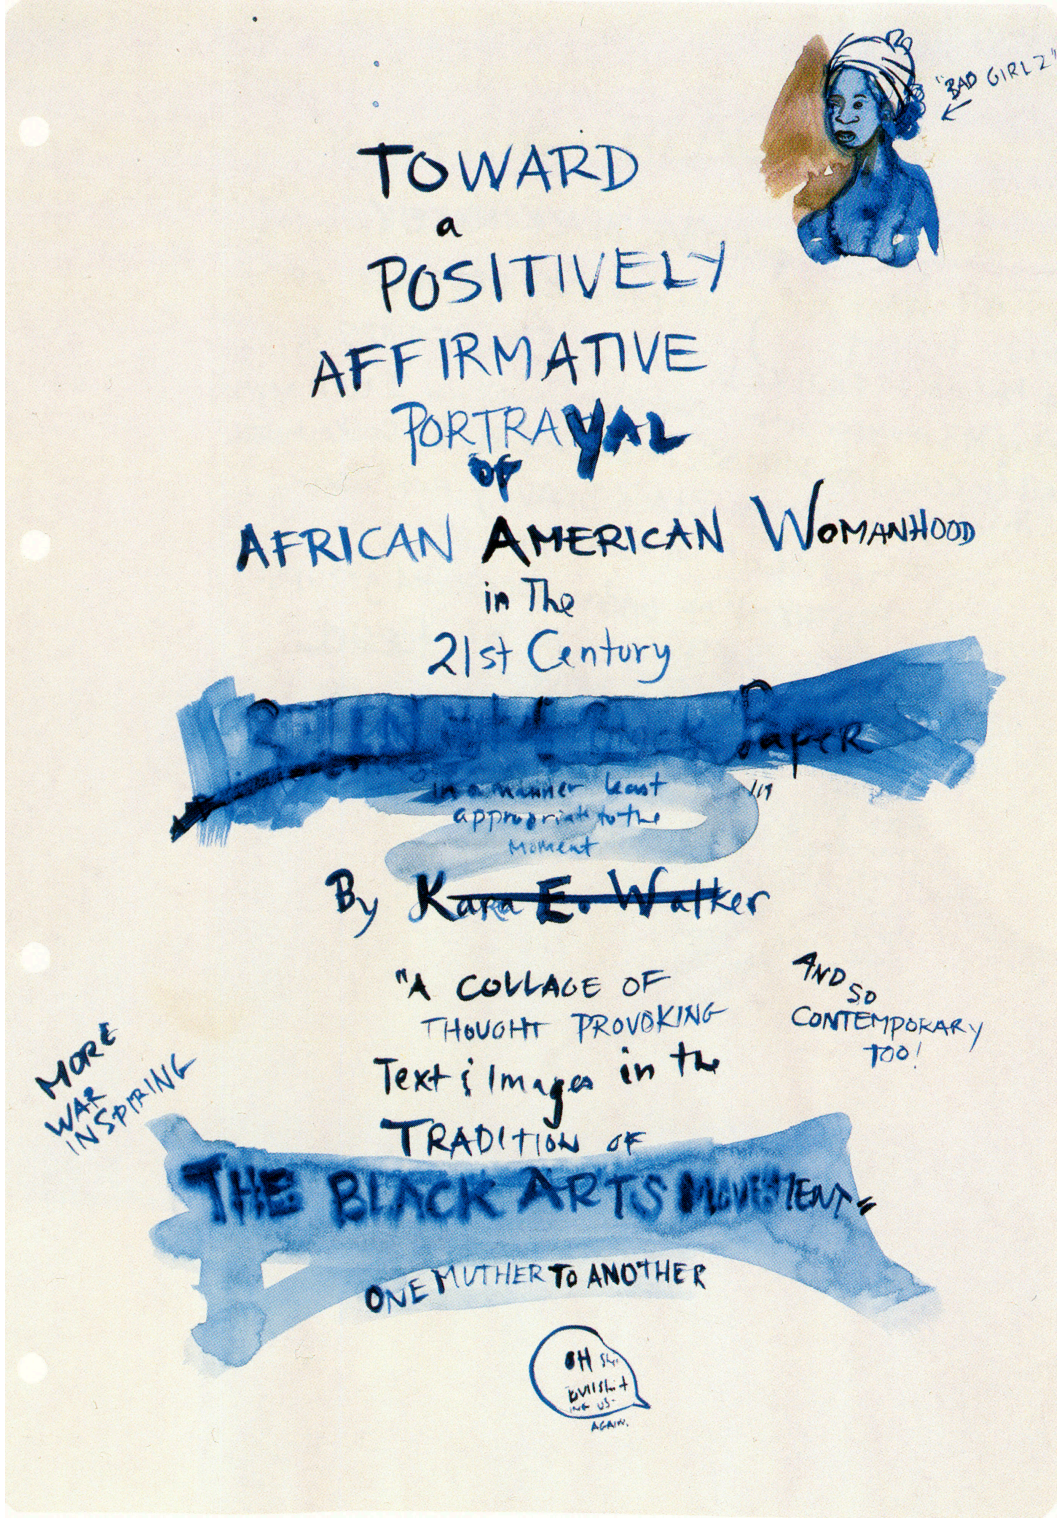 "BAD GIRLZ"
TOWARD
a
POSITIVELY
AFFIRMATIVE
PORTRAYAL
OF
AFRICAN AMERICAN WOMANHOOD
in The
21st Century
Paper
in a manner least
appropriate to the
moment
By Kara E. Walker
"A COLLAGE OF
THOUGHT PROVOKING
Text & Images in the
TRADITION OF
THE BLACK ARTS MOVEMENT"
AND
SO
CONTEMPORARY
TOO!
MORE
WAR
INSPIRING
ONE MUTHER TO ANOTHER
OH
BullShit
ING US
AGAIN.